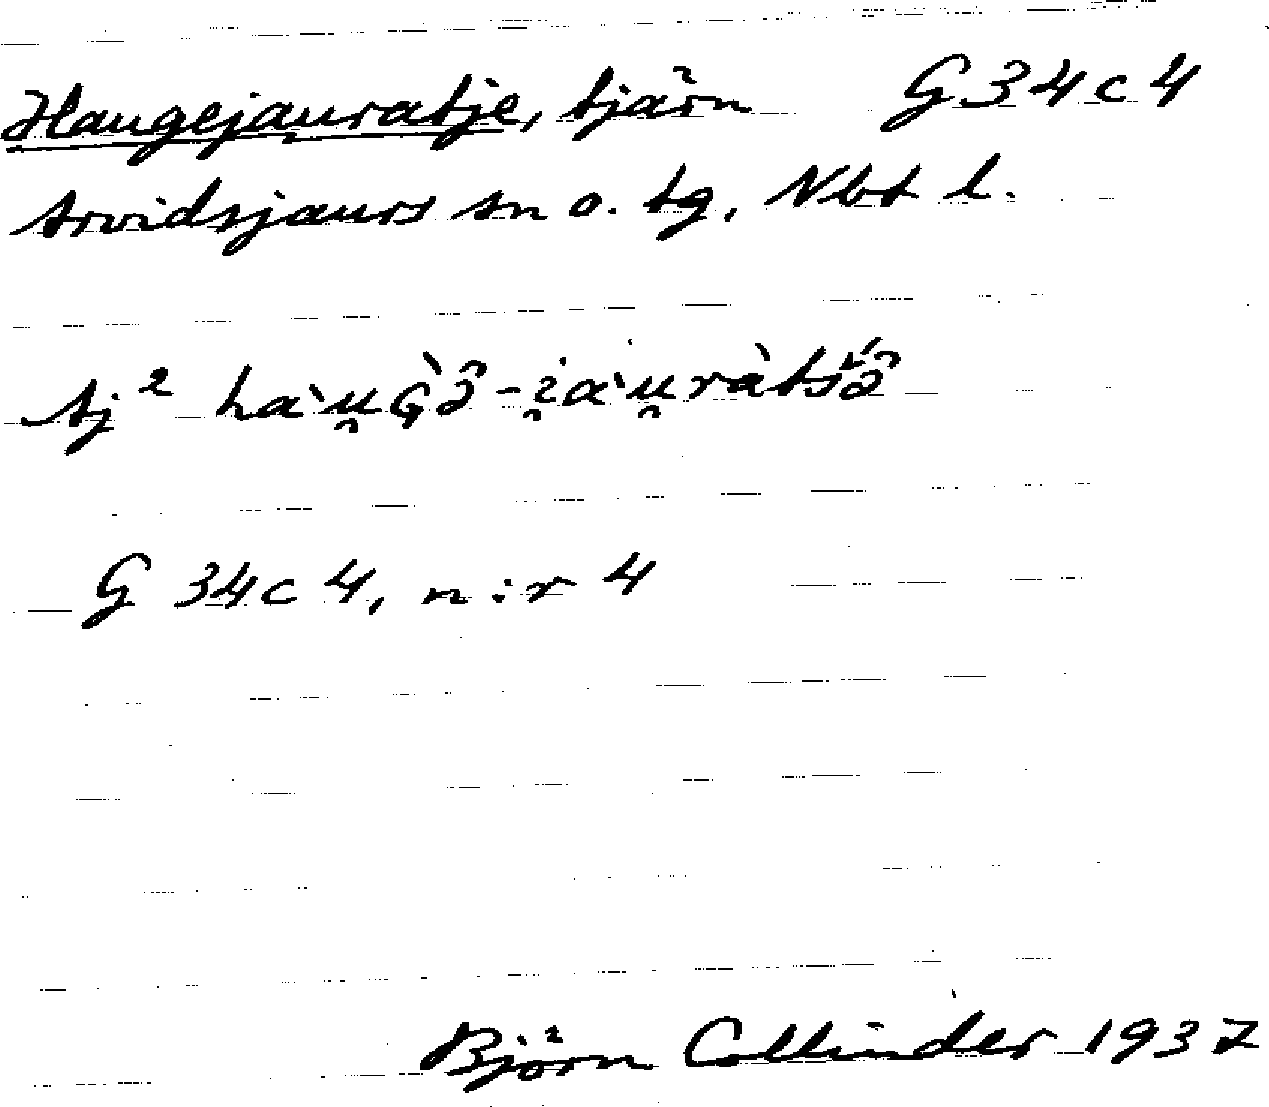 Haugejauratje, tjärn G34c4
Arvidsjaurs sn o. tg, Nbt l.
Aj²
G 34c4, n:r 4
Björn Collinder 1937